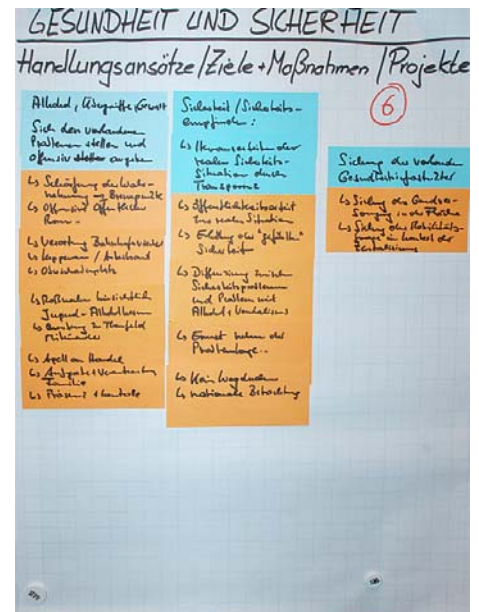 GESUNDHEIT UND SICHERHEIT
Handlungsansätze/Ziele+Maßnahmen/Projekte
6
Alkohol, Übergriffe, Gewalt
Sich den vorhandenen
Problemen stellen und
offensiv angehen
↳ Schärfung der Wahr-
nehmung auf Brennpunkte
↳ Offensive öffentlicher
Raum
↳ Verortung Bahnhofsvorplatz
↳
↳
↳ Maßnahmen hinsichtlich
Jugend-Alkoholkonsum
↳
↳ Apell an Handel
↳
Familie
↳ Präsenz + Kontrolle
Sicherheit/Sicherheits-
empfinden:
↳ Herausarbeiten der
realen Sicherheits-
Situation durch
Transparenz
↳ Öffentlichkeitsarbeit
zur realen Situation
↳ Erhöhung der "gefühlten"
Sicherheit
↳ Differenzierung zwischen
Sicherheitsproblemen
und Problemen mit
Alkohol + Vandalismus
↳ Ernst nehmen der
Problemlage..
↳ Kein Wegducken
↳ rationale Betrachtung
Sicherung der vorhanden
Gesundheitsinfrastruktur
↳ Sicherung der Grundver-
sorgung in der Fläche
↳ Sicherung der Mobilitäts-
im Kontext der
Zentralisierung